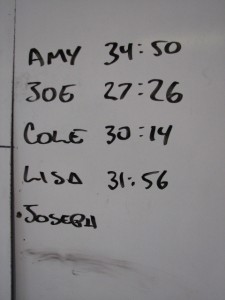 AMY 34:50
JOE 27:26
COLE 30:14
LISA 31:56
.JOSEPH